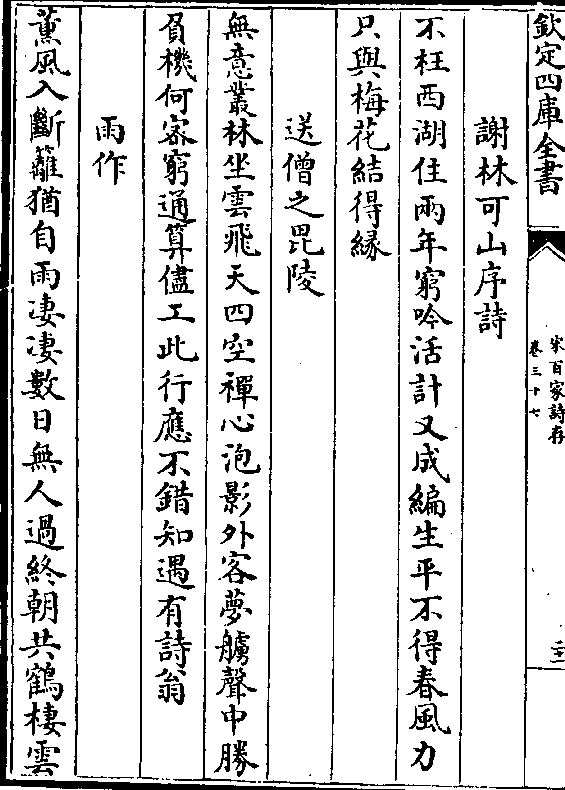 欽定四庫全書
宋百家詩存
卷三十七
二十一
謝林可山序詩
不枉西湖住兩年窮吟活計又成編生平不得春風力
只與梅花結得縁
送僧之毘陵
無意叢林坐雲飛天四空禪心泡影外客夢艣聲中勝
負機何宻窮通算儘工此行應不錯知遇有詩翁
雨作
薫風入斷籬猶自雨凄凄數日無人過終朝共鶴棲雲